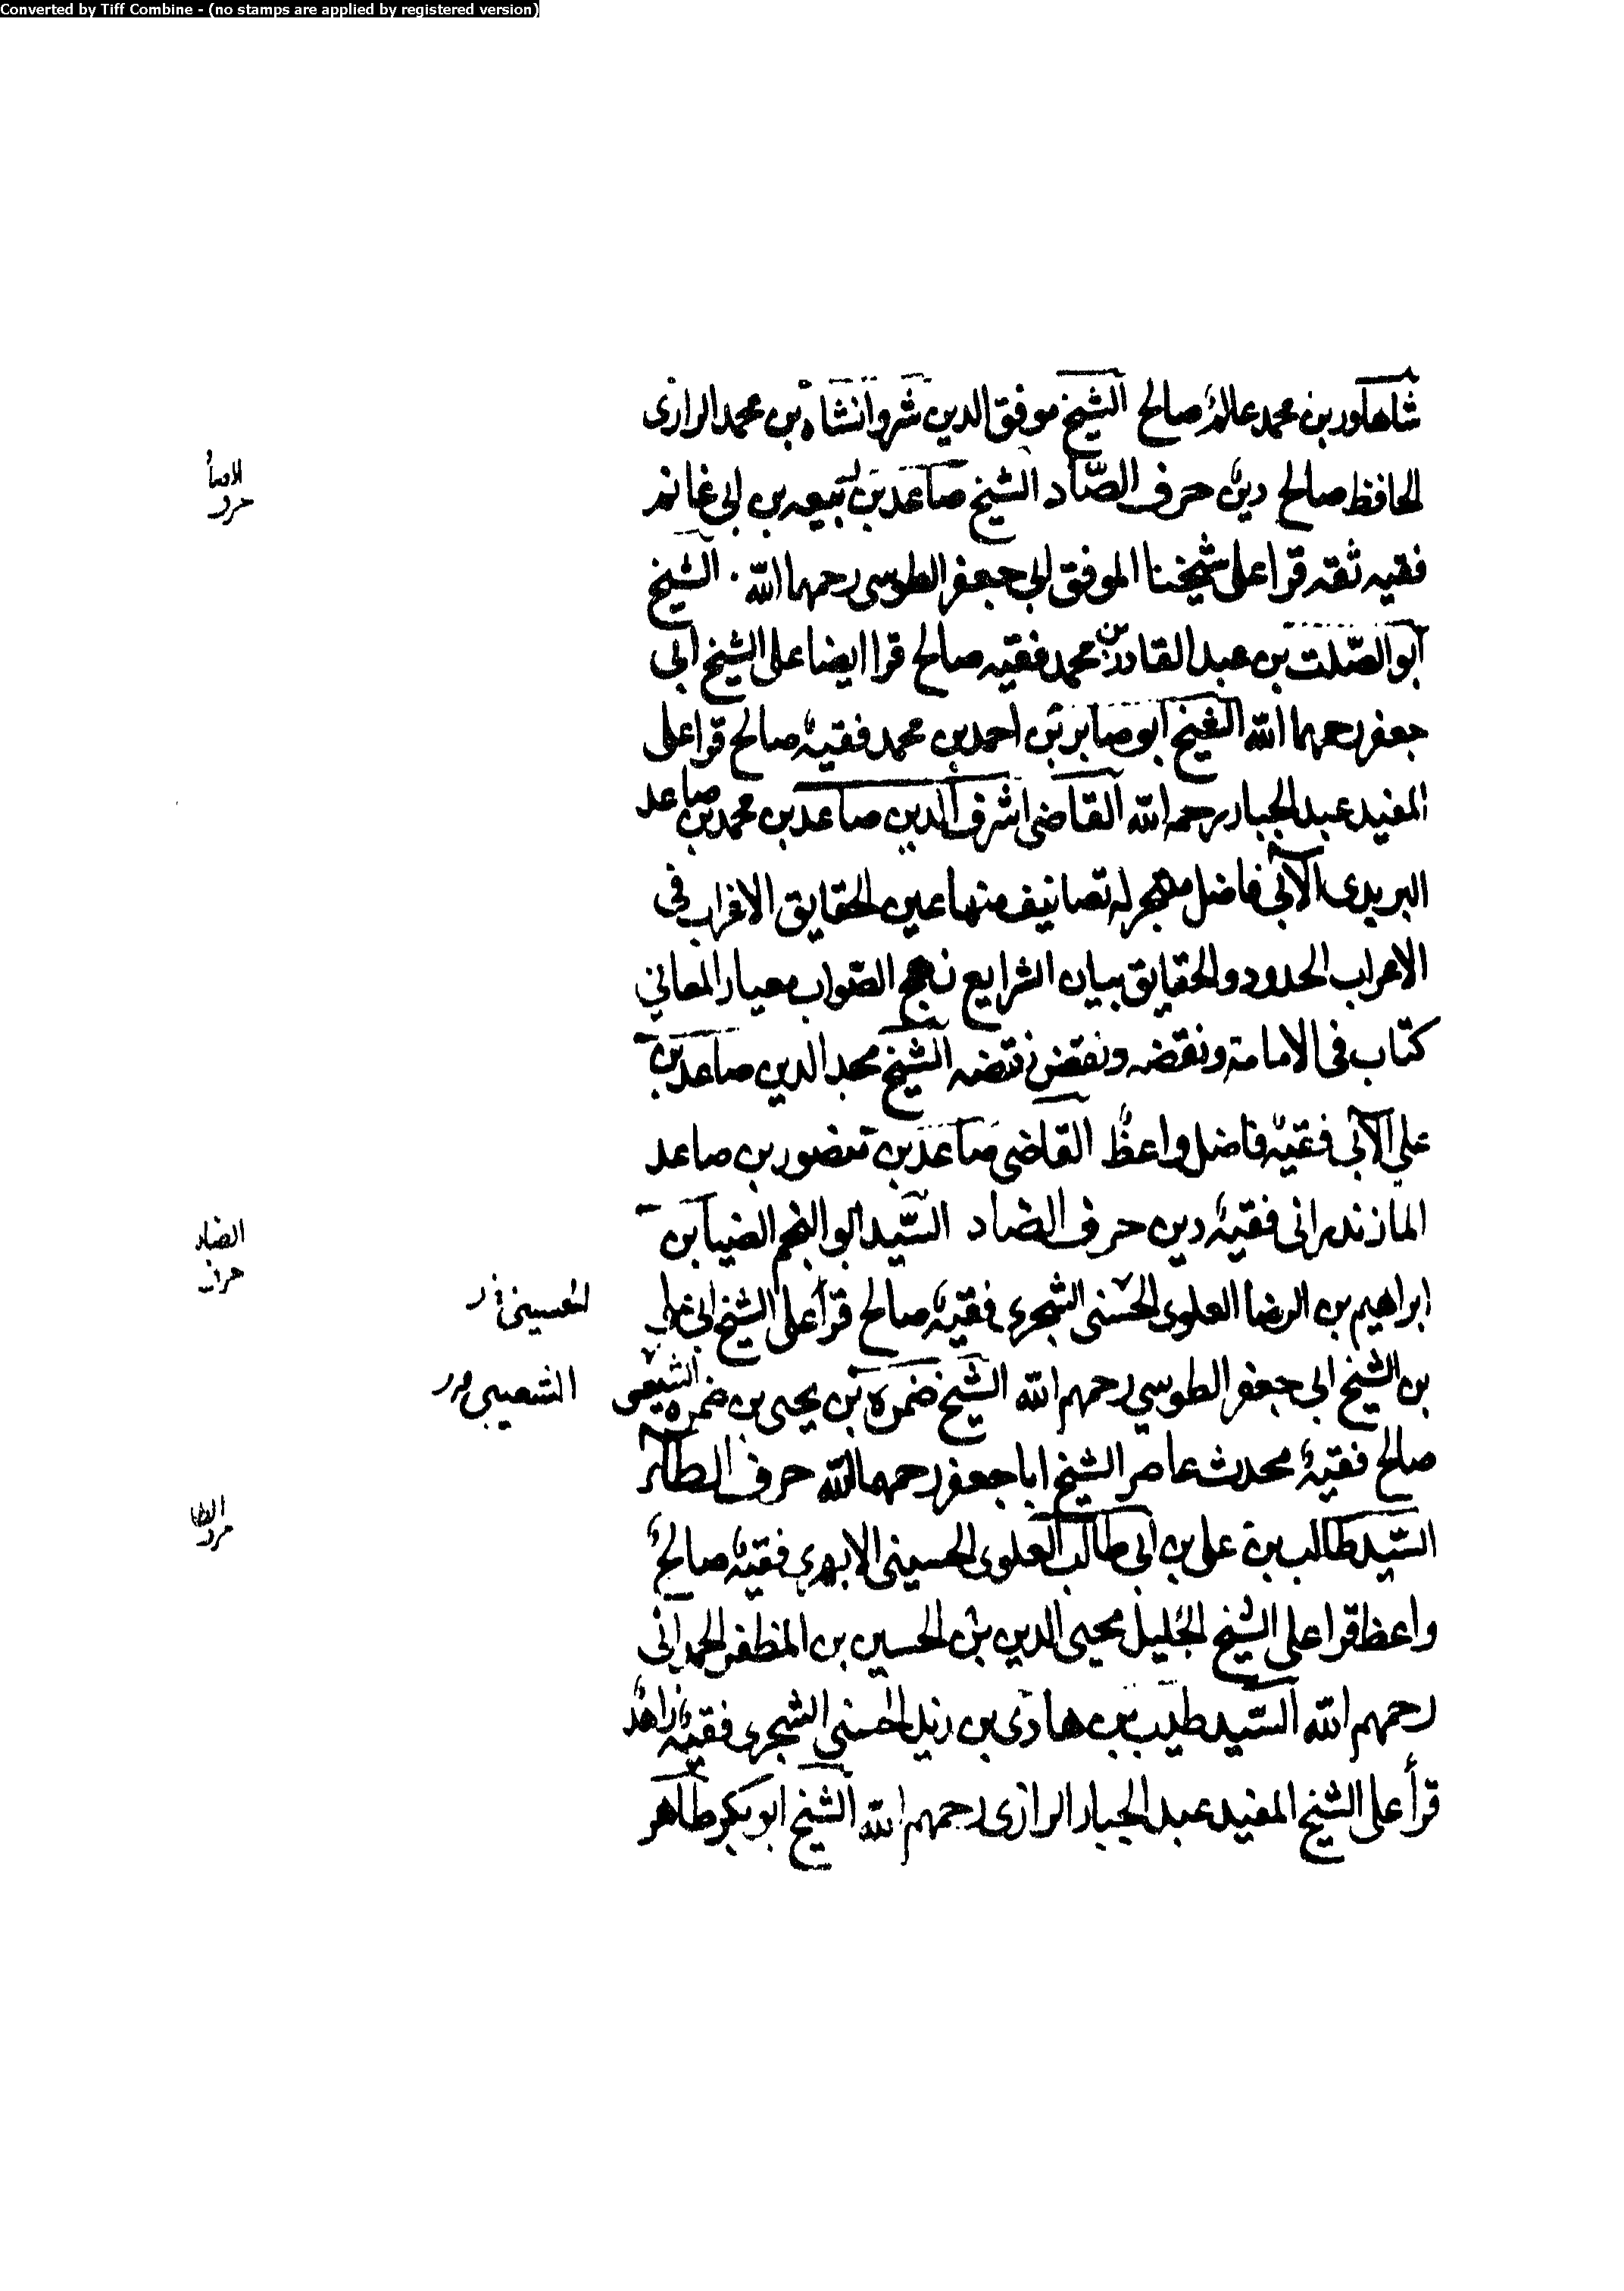 Converted by Tiff Combine - (no stamps are applied by registered version)
شاهاور بن محمد عالم صالح الشيخ موفق الدين شروانشاه بن محمد الرازى
الحافظ صالح دين حرف الصّاد الشيخ صاعد بن ربيعه بن ابى غانم
فقيه ثقه قرا على شيخنا الموفق ابى جعفر الطوسى رحمهما الله . الشيخ
ابو الصّلت بن عبد القادر بن محمد فقيه صالح قرا ايضا على الشيخ ابى
جعفر رحمهما الله الشيخ ابو صابر بن احمد بن محمد فقيه صالح قرا على
المفيد عبد الجبار رحمه الله القاضى اشرف الدين صاعد بن محمد بن صاعد
البريدى الآبى فاضل متبحر له تصانيف منها عين الحقايق الاغراب فى
الاعراب الحدود والحقايق بيان الشرايع نهج الصّواب معيار المعانى
كتاب فى الامامة ونقضه ونقض نقضه الشيخ مجد الدين صاعد بن
على الآبى فقيه فاضل واعظ القاضى صاعد بن منصور بن صاعد
المازندرانى فقيه دين حرف الضاد السّيد ابو النجم الضيا بن
ابراهيم بن الرضا العلوى الحسنى الشجرى فقيه صالح قرأ على الشيخ ابى على
بن الشيخ ابى جعفر الطوسي رحمهم الله الشيخ ضمرة بن يحيى بن ضمره الشيعى
صالح فقيه محدث عاصر الشيخ ابا جعفر رحمهما الله حرف الطاء
السّيد طالب بن على بن ابى طالب العلوى الحسينى الابهرى فقيه صالح
واعظ قرا على الشيخ الجليل محيى الدين بن الحسين بن المظفر الحمدانى
رحمهم الله السّيد طيب بن هادى بن زيد الحسنى الشجرى فقيه زاهد
قرأ على الشيخ المفيد عبد الجبار الرازى رحمهم الله الشيخ ابو بكر طاهر
الصاد
حرف
الضاد
حرف
الحسينى
الشعيبى
الطا
حرف